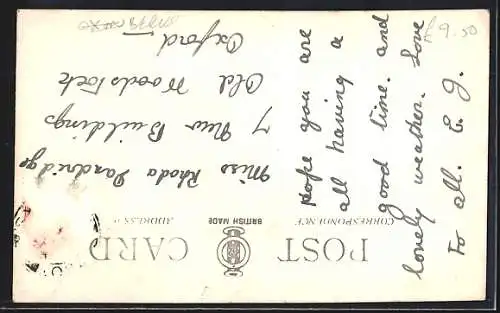 POST CARD
CORRESPONDENCE
BRITISH MADE
ADDRESS
Hope you are
all having a
good time. and
lovely weather. Love
to all. E. J.
Miss Rhoda Dandridge
7 New Buildings
Old Woodstock
Oxford
£9.50